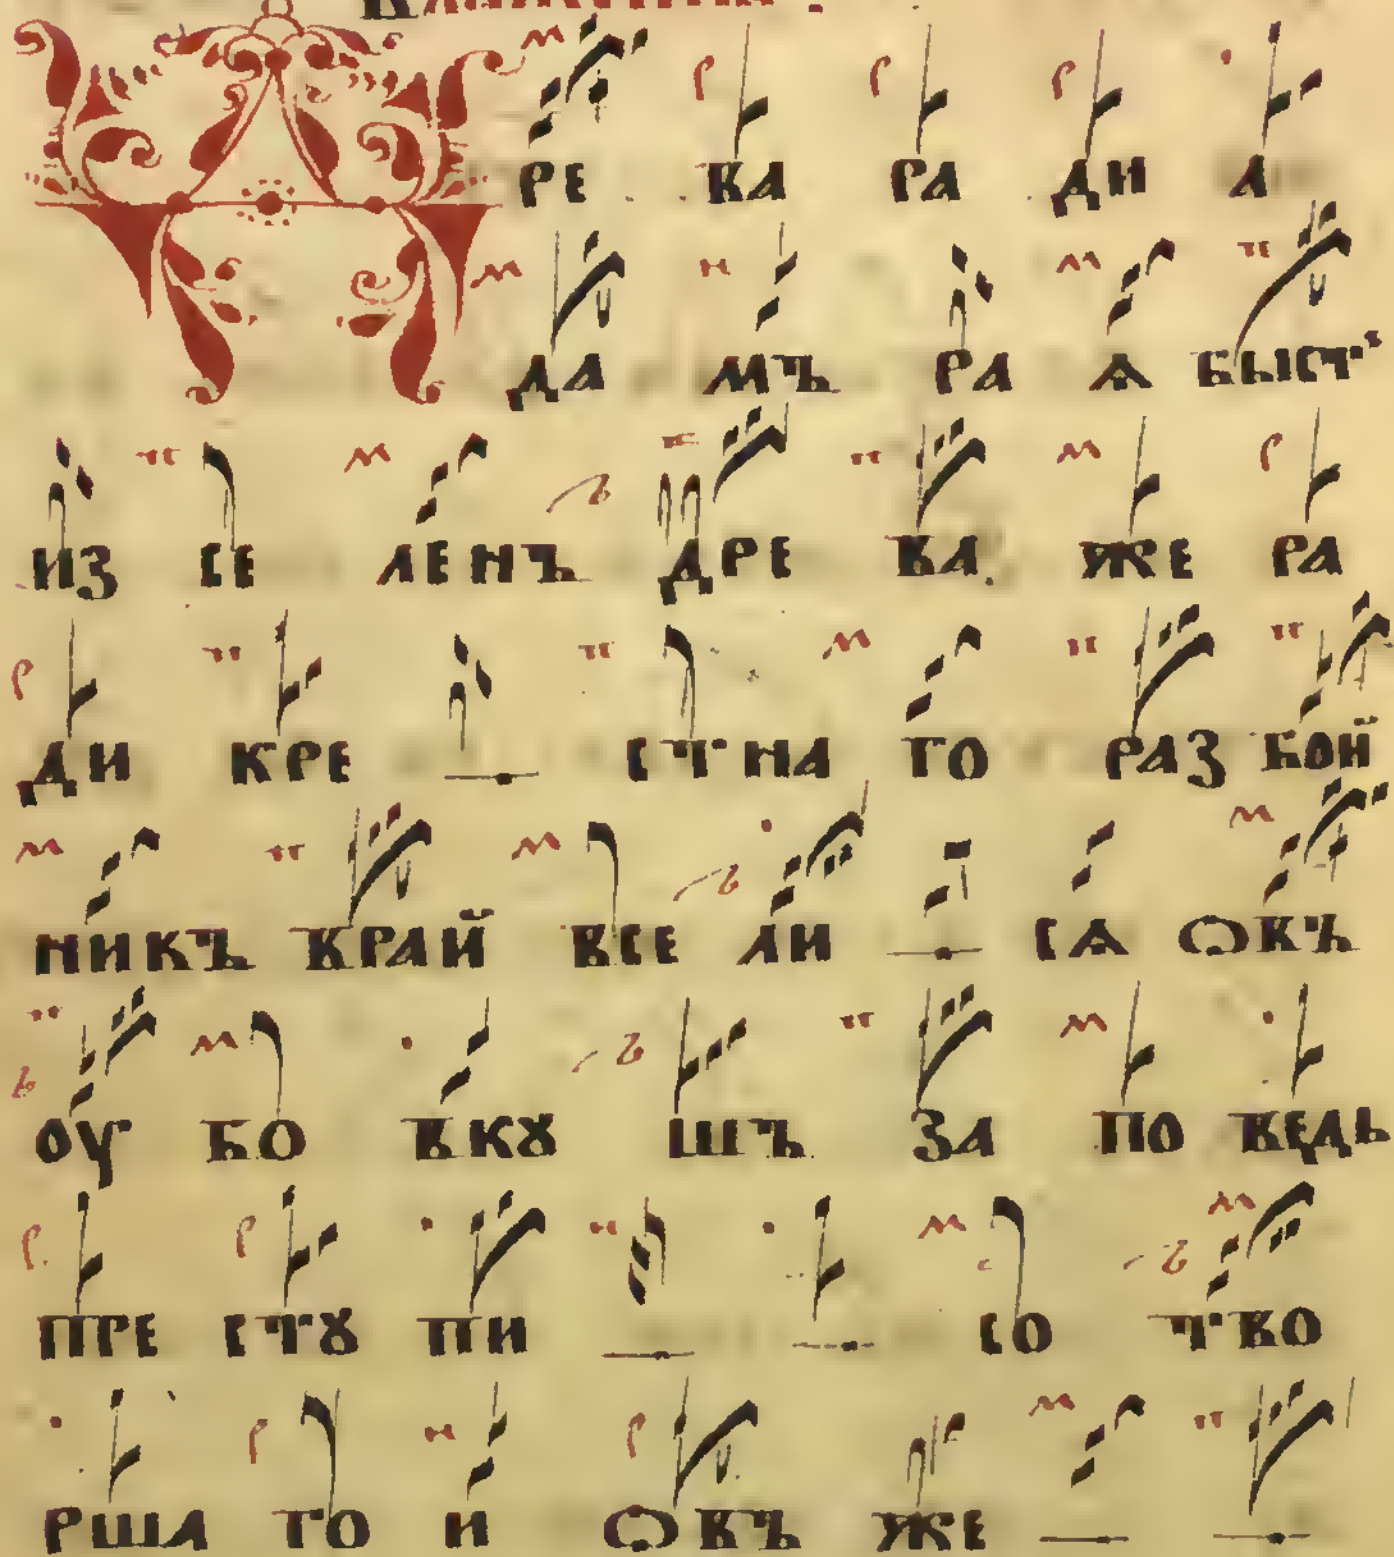 Д РЕ ВА РА ДИ А
ДА МЪ РА Ѧ БЫСТЬ
ИЗ СЕ ЛЕНЪ ДРЕ ВА ЖЕ РА
ДИ КРЕ СТНА ГО РАЗ БОЙ
НИКЪ ВРАЙ ВСЕ ЛИ СѦ ѠВЪ
ОУ БО ВКꙋ ШЪ ЗА ПО ВѢДЬ
ПРЕ СТꙋ ПИ СО ТВО
РША ГО И ѠВЪ ЖЕ